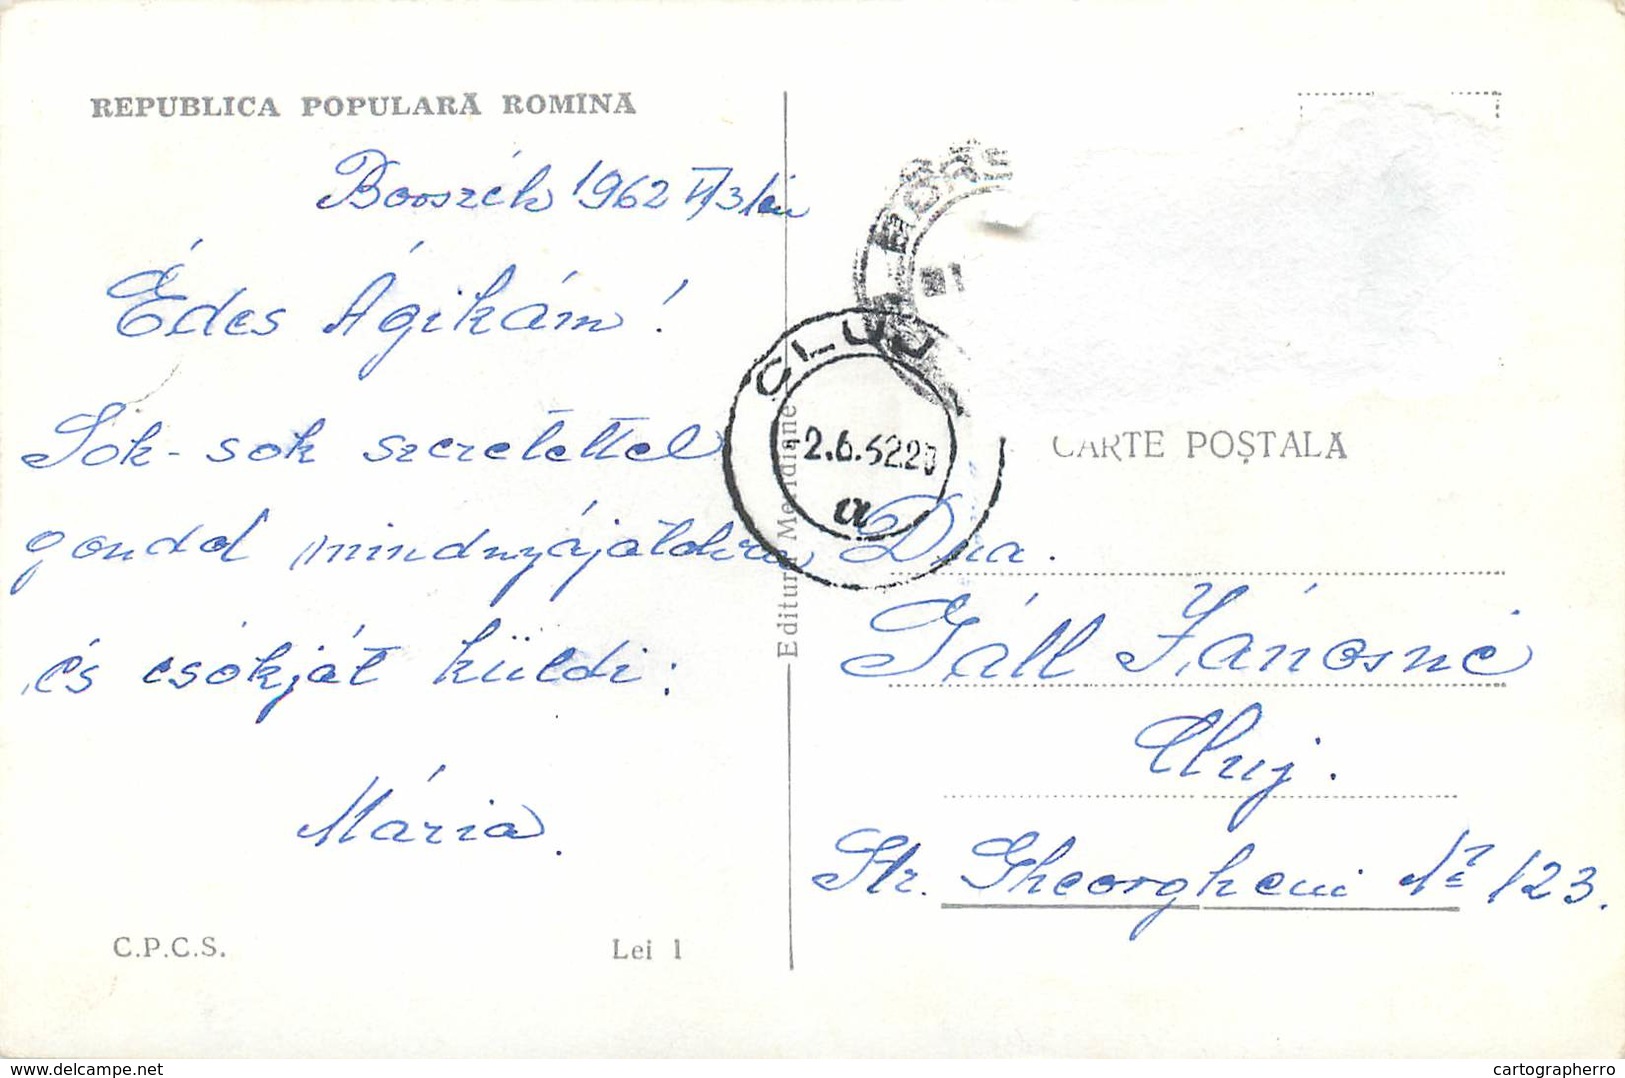 REPUBLICA POPULARĂ ROMÎNĂ
Borszék 1962
Édes Ágikám!
Sok-sok szeretettel
gondol mindnyájatokra
és csókját küldi:
Mária.
C.P.C.S.
Lei 1
Editura Meridiane
BORS
CLUJ
2.6.62.20
a
CARTE POȘTALĂ
Dna.
Gáll Jánosné
Cluj.
Str. Gheorgheni Nr 123.
delcampe.net
cartographerro